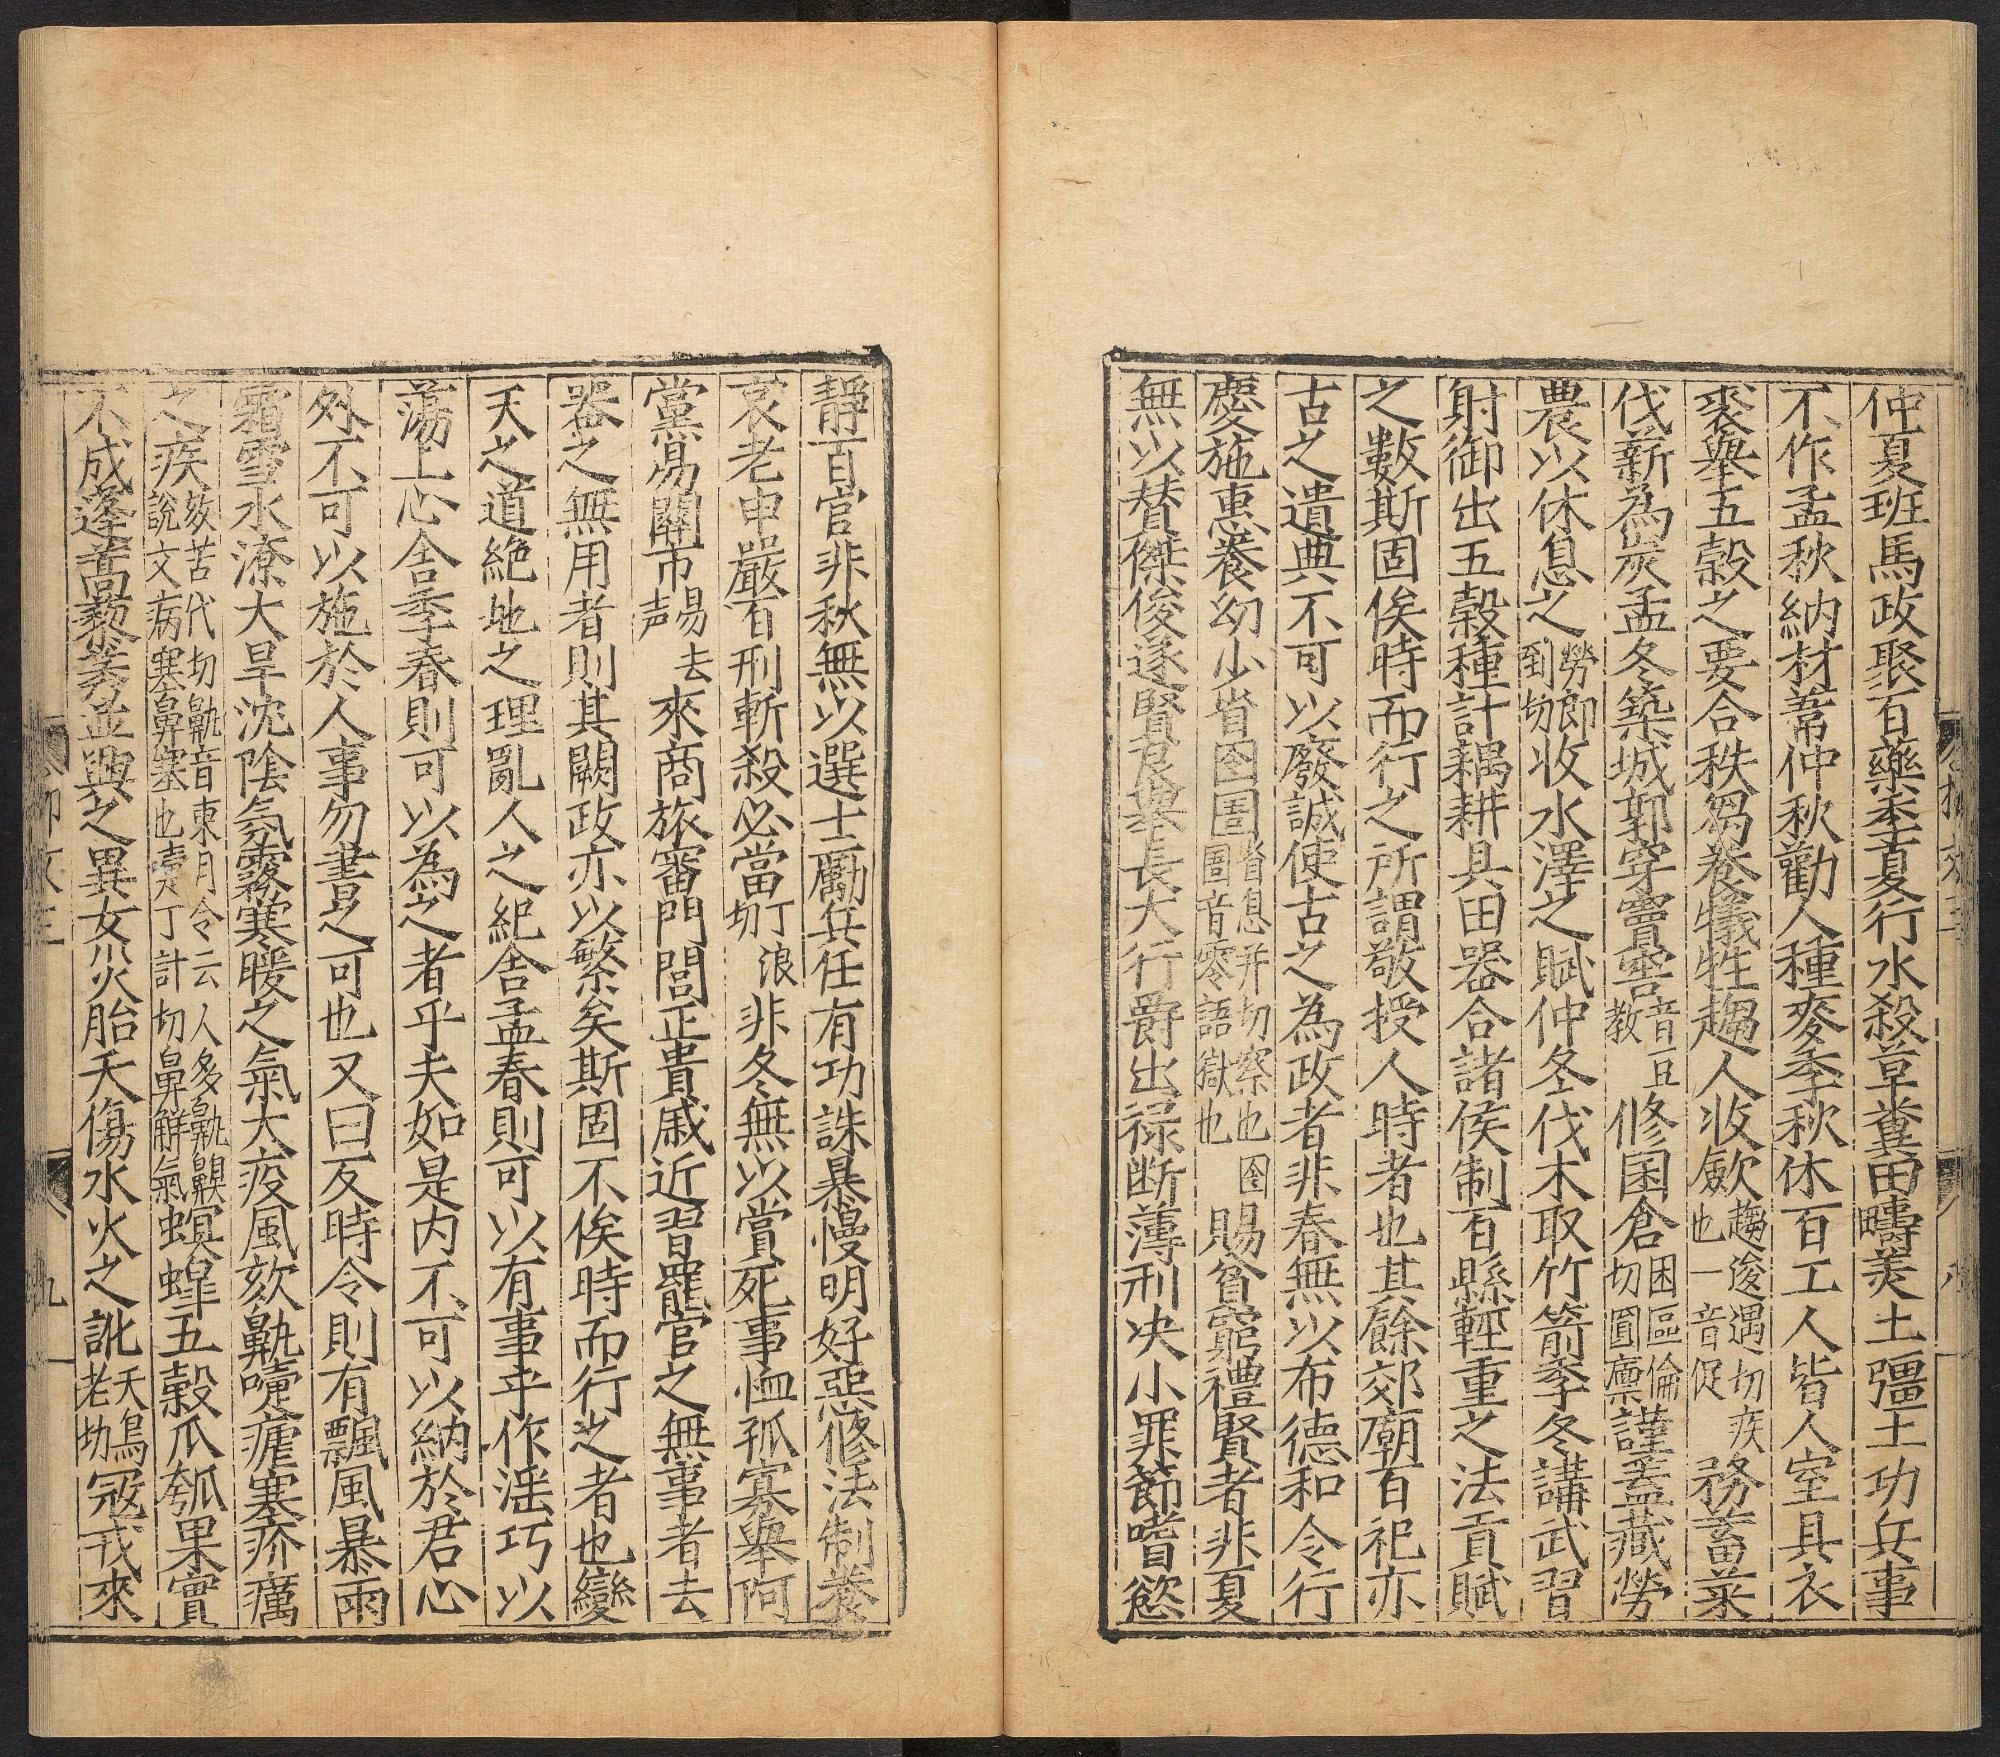 仲夏班馬政聚百藥季夏行水殺草糞田疇美土彊土功兵事
不作孟秋納材葦仲秋勸人種麥季秋休百工人皆入室具衣
裘舉五穀之要合秩芻養犧牲趨人收斂趨逡遇切疾也一音促務蓄菜
伐薪為炭孟冬築城郭穿竇窖音豆教修囷倉囷區倫切圓廪謹蓋藏勞
農以休息之勞郎到切收水澤之賦仲冬伐木取竹箭季冬講武習
射御出五穀種計耦耕具田器合諸侯制百縣輕重之法貢賦
之數斯固俟時而行之所謂敬授人時者也其餘郊廟百祀亦
古之遺典不可以廢誠使古之為政者非春無以布德和令行
慶施惠養幼少省囹圄省息井切察也囹圄音零語獄也賜貧窮禮賢者非夏
無以賛傑俊遂賢良舉長大行爵出禄断薄刑决小罪節嗜慾
靜百官非秋無以選士勵兵任有功誅暴慢明好惡修法制養
衰老申嚴百刑斬殺必當丁浪切非冬無以賞死事恤孤寡舉阿
黨易關市易去声來商旅審門閭正貴戚近習罷官之無事者去
器之無用者則其闕政亦以繁矣斯固不俟時而行之者也變
天之道絶地之理亂人之紀舍孟春則可以有事乎作淫巧以
蕩上心舍季春則可以為之者乎夫如是内不可以納於君心
外不可以施於人事勿書之可也又曰反時令則有飄風暴雨
霜雪水潦大旱沈陰氛霧寒暖之氣大疫風欬鼽嚏瘧寒疥癘
之疾欬苦代切鼽音求月令云人多鼽嚏說文病塞鼻窒也嚏丁計切鼻解氣螟蝗五穀瓜瓠果實
不成蓬蒿藜莠並興之異女災胎夭傷水火之訛夭烏老切寇戎來